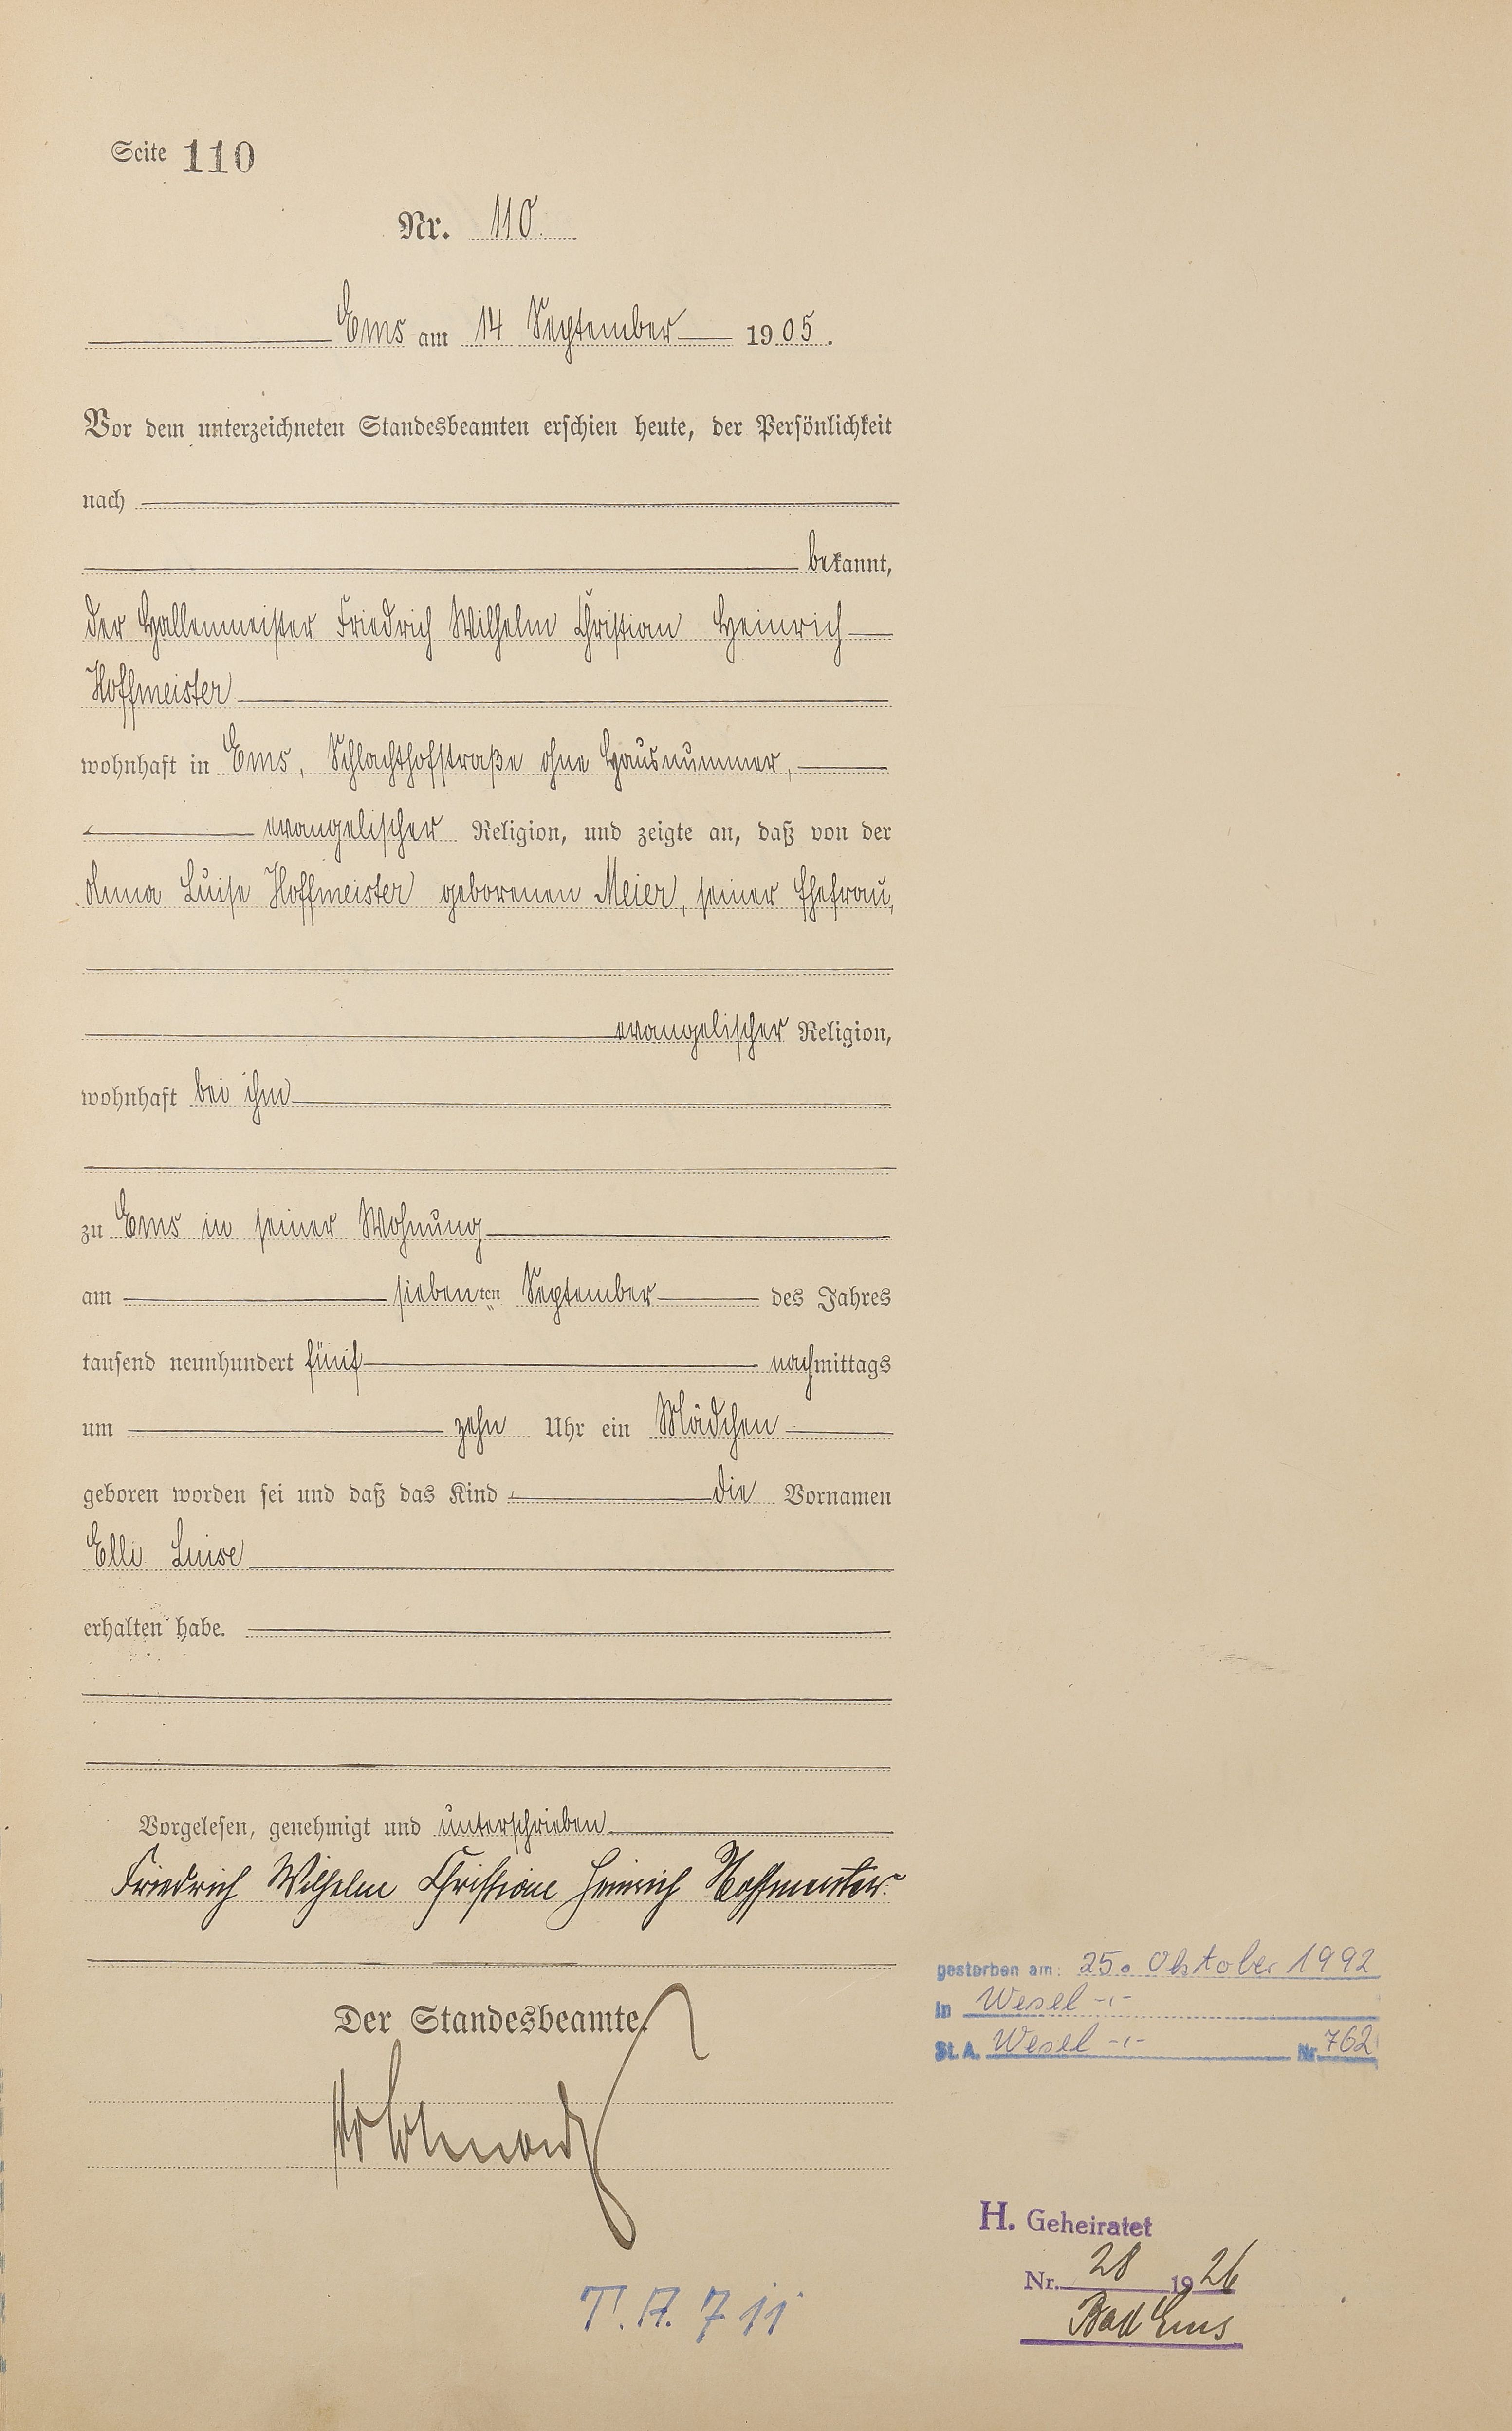 Seite 110
Nr. 110.
Ems am 14 September 1905.
Vor dem unterzeichneten Standesbeamten erschien heute, der Persönlichkeit
nach
bekannt,
der Hallenmeister Friedrich Wilhelm Christian Heinrich
Hoffmeister
wohnhaft in Ems, Schlachthofstraße ohne Hausnummer,
evangelischer Religion, und zeigte an, daß von der
Anna Luise Hoffmeister geborenen Meier, seiner Ehefrau,
evangelischer Religion,
wohnhaft bei ihm
zu Ems in seiner Wohnung
am siebenten September des Jahres
tausend neunhundert fünf nachmittags
um zehn Uhr ein Mädchen
geboren worden sei und daß das Kind die Vornamen
Elli Luise
erhalten habe.
Vorgelesen, genehmigt und unterschrieben
Friedrich Wilhelm Christian Heinrich Hoffmeister.
Der Standesbeamte.
gestorben am: 25. Oktober 1992
in Wesel -,-
St. A. Wesel -,- Nr. 762
H. Geheiratet
Nr. 28 1926
Bad Ems
T. A. 711